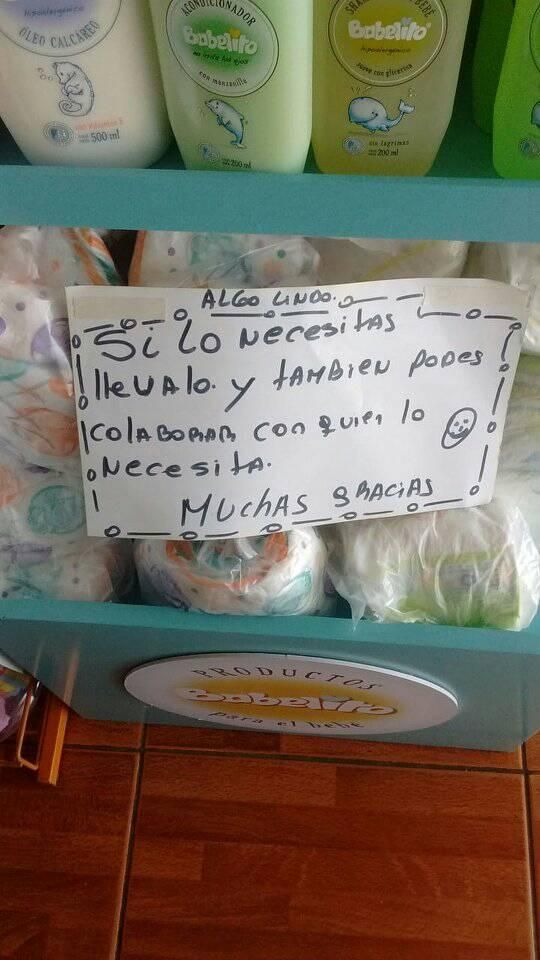 hipoalergénico
ÓLEO CALCÁREO
con vitamina E
500 ml
ACONDICIONADOR
Babelito
no irrita los ojos
con manzanilla
200 ml
Babelito
hipoalergénico
suave con glicerina
sin lágrimas
200 ml
ALGO LINDO.
Si lo necesitas
llevalo. y tambien podes
colaborar con quien lo
necesita.
Muchas gracias
PRODUCTOS
Babelito
para el bebé